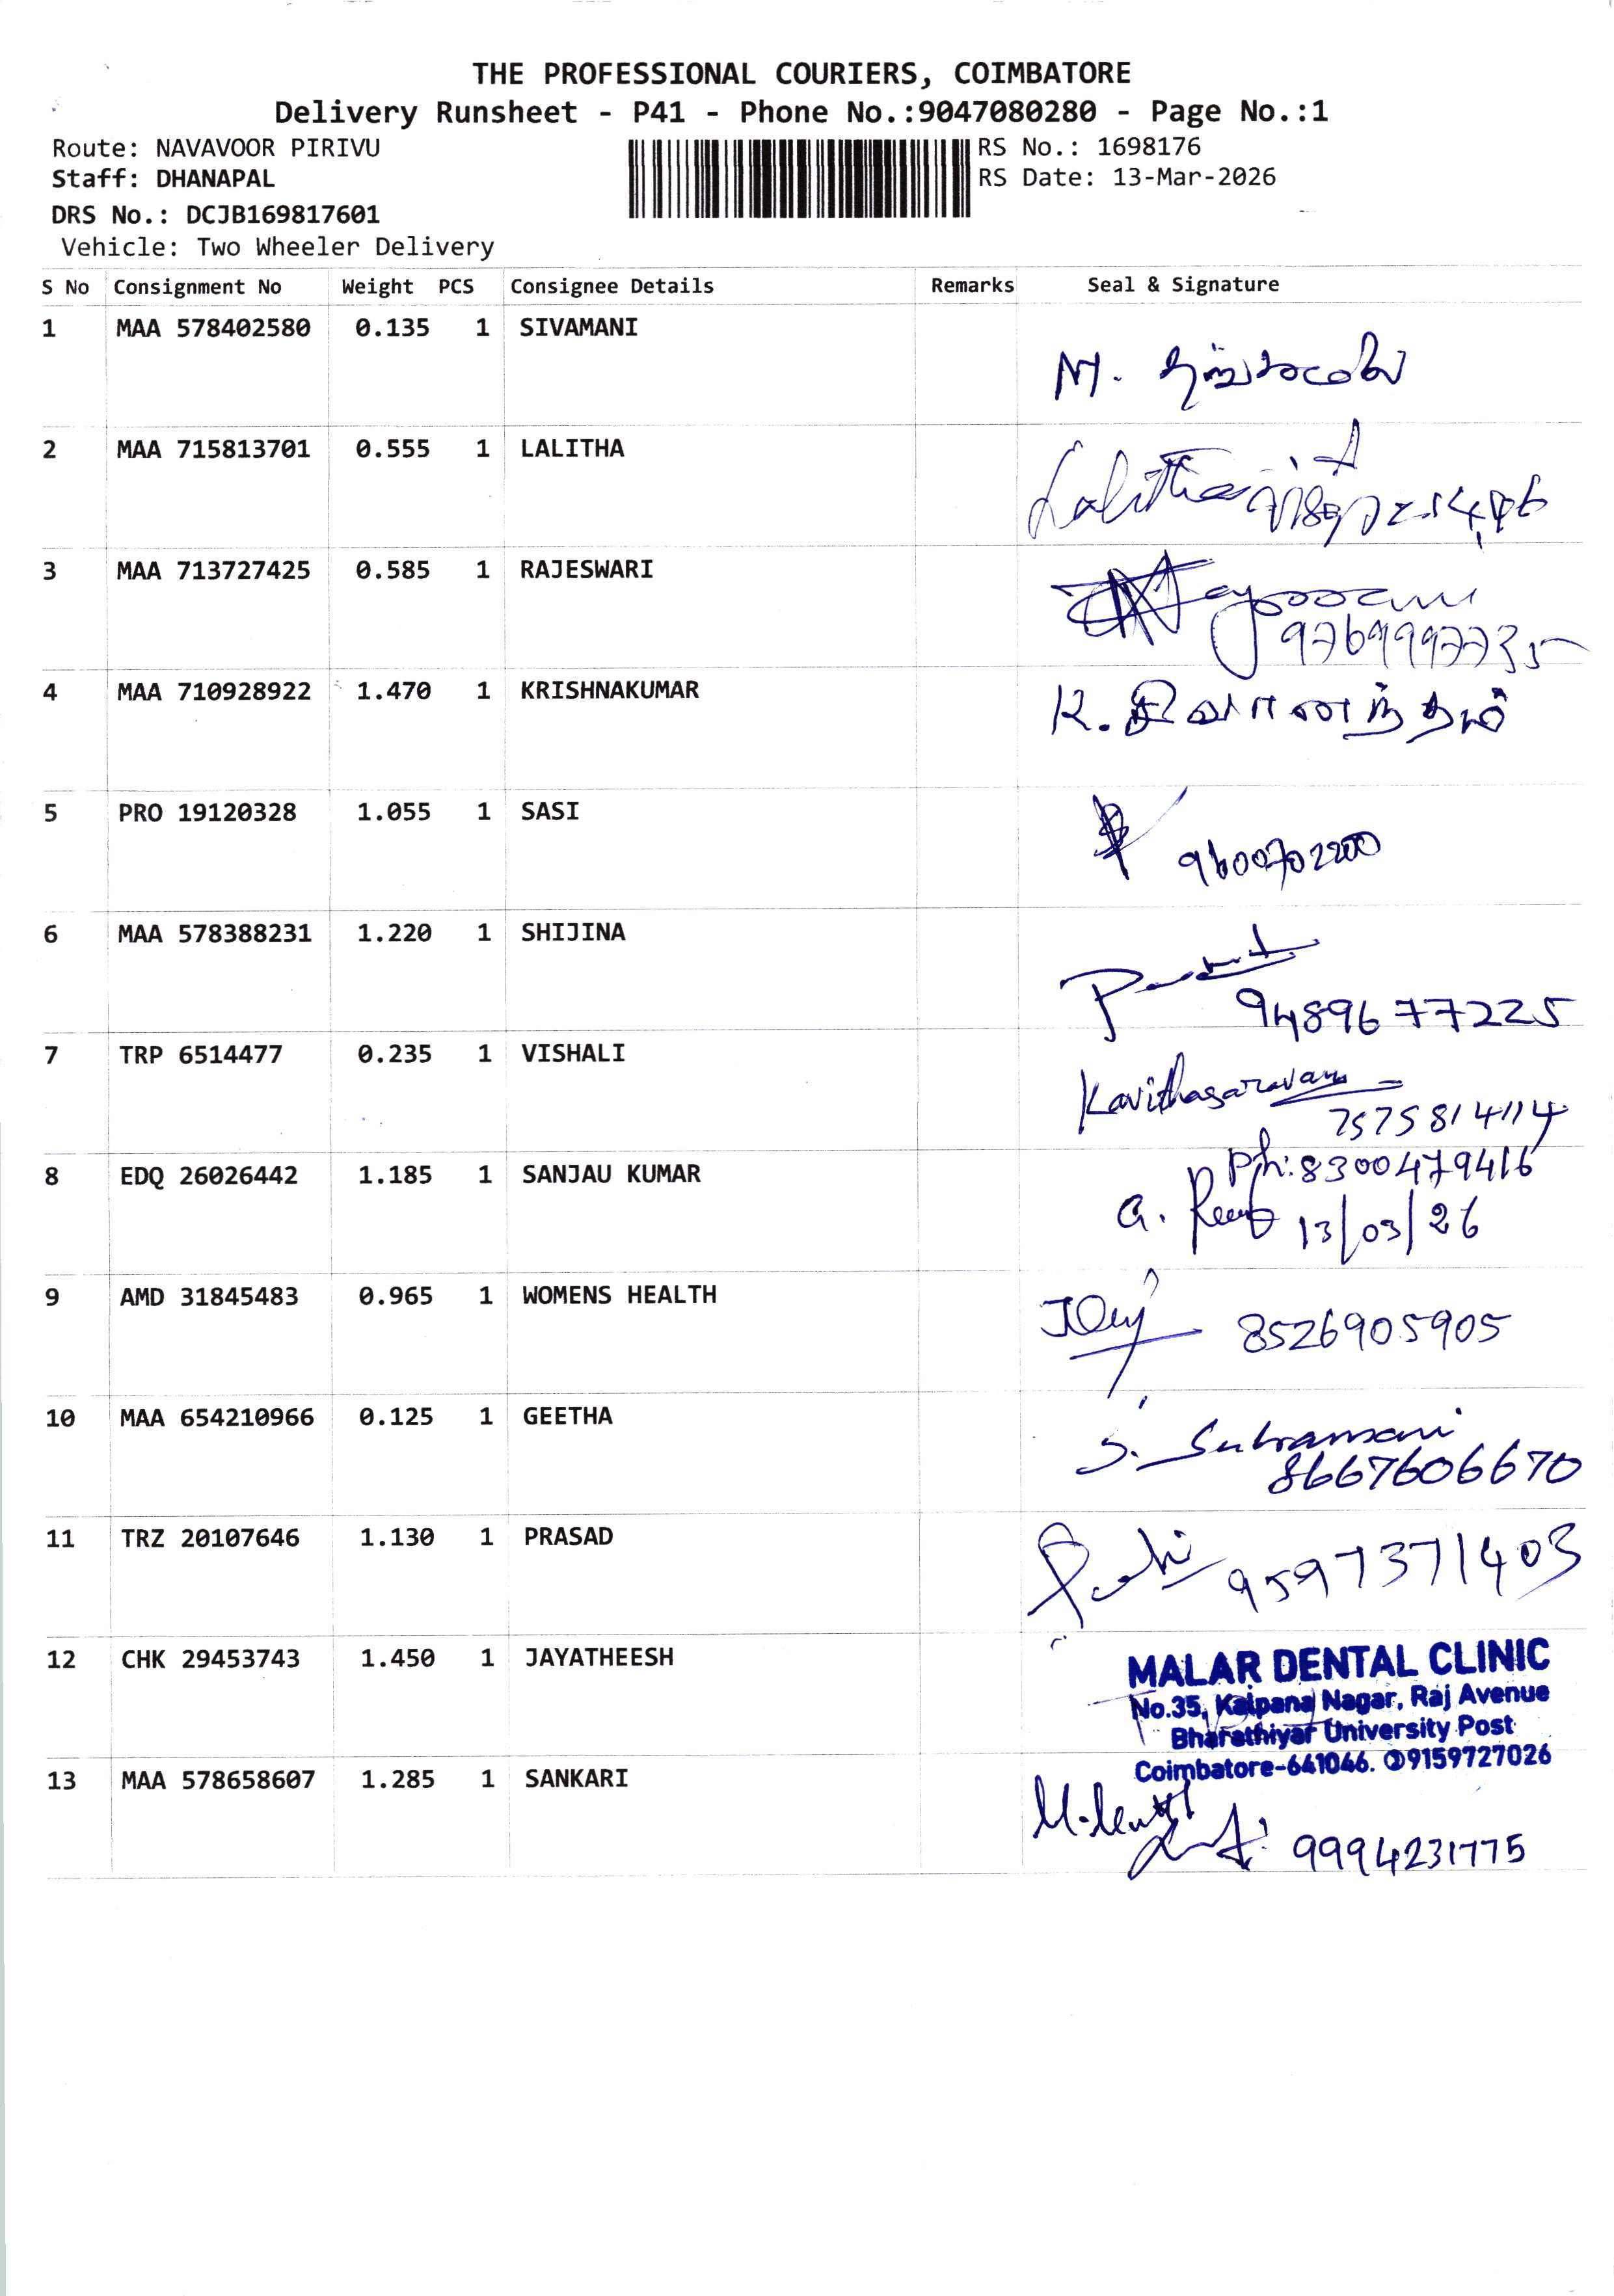 THE PROFESSIONAL COURIERS, COIMBATORE
Delivery Runsheet - P41 - Phone No.:9047080280 - Page No.:1
Route: NAVAVOOR PIRIVU
RS No.: 1698176
Staff: DHANAPAL
RS Date: 13-Mar-2026
DRS No.: DCJB169817601
Vehicle: Two Wheeler Delivery
S No Consignment No Weight PCS Consignee Details Remarks Seal & Signature
1 MAA 578402580 0.135 1 SIVAMANI
M.
2 MAA 715813701 0.555 1 LALITHA
Lalitha
3 MAA 713727425 0.585 1 RAJESWARI
9769997735
4 MAA 710928922 1.470 1 KRISHNAKUMAR
K. சிவானந்தம்
5 PRO 19120328 1.055 1 SASI
9600702200
6 MAA 578388231 1.220 1 SHIJINA
9489677225
7 TRP 6514477 0.235 1 VISHALI
Kavithasaravan
7575814114
8 EDQ 26026442 1.185 1 SANJAU KUMAR
Ph: 8300479416
G. 13/03/26
9 AMD 31845483 0.965 1 WOMENS HEALTH
8526905905
10 MAA 654210966 0.125 1 GEETHA
S. Subramani
8667606670
11 TRZ 20107646 1.130 1 PRASAD
9597371403
12 CHK 29453743 1.450 1 JAYATHEESH
MALAR DENTAL CLINIC
No.35, Kalpana Nagar, Raj Avenue
Bharathiyar University Post
Coimbatore-641046. ✆9159727026
13 MAA 578658607 1.285 1 SANKARI
9994231775